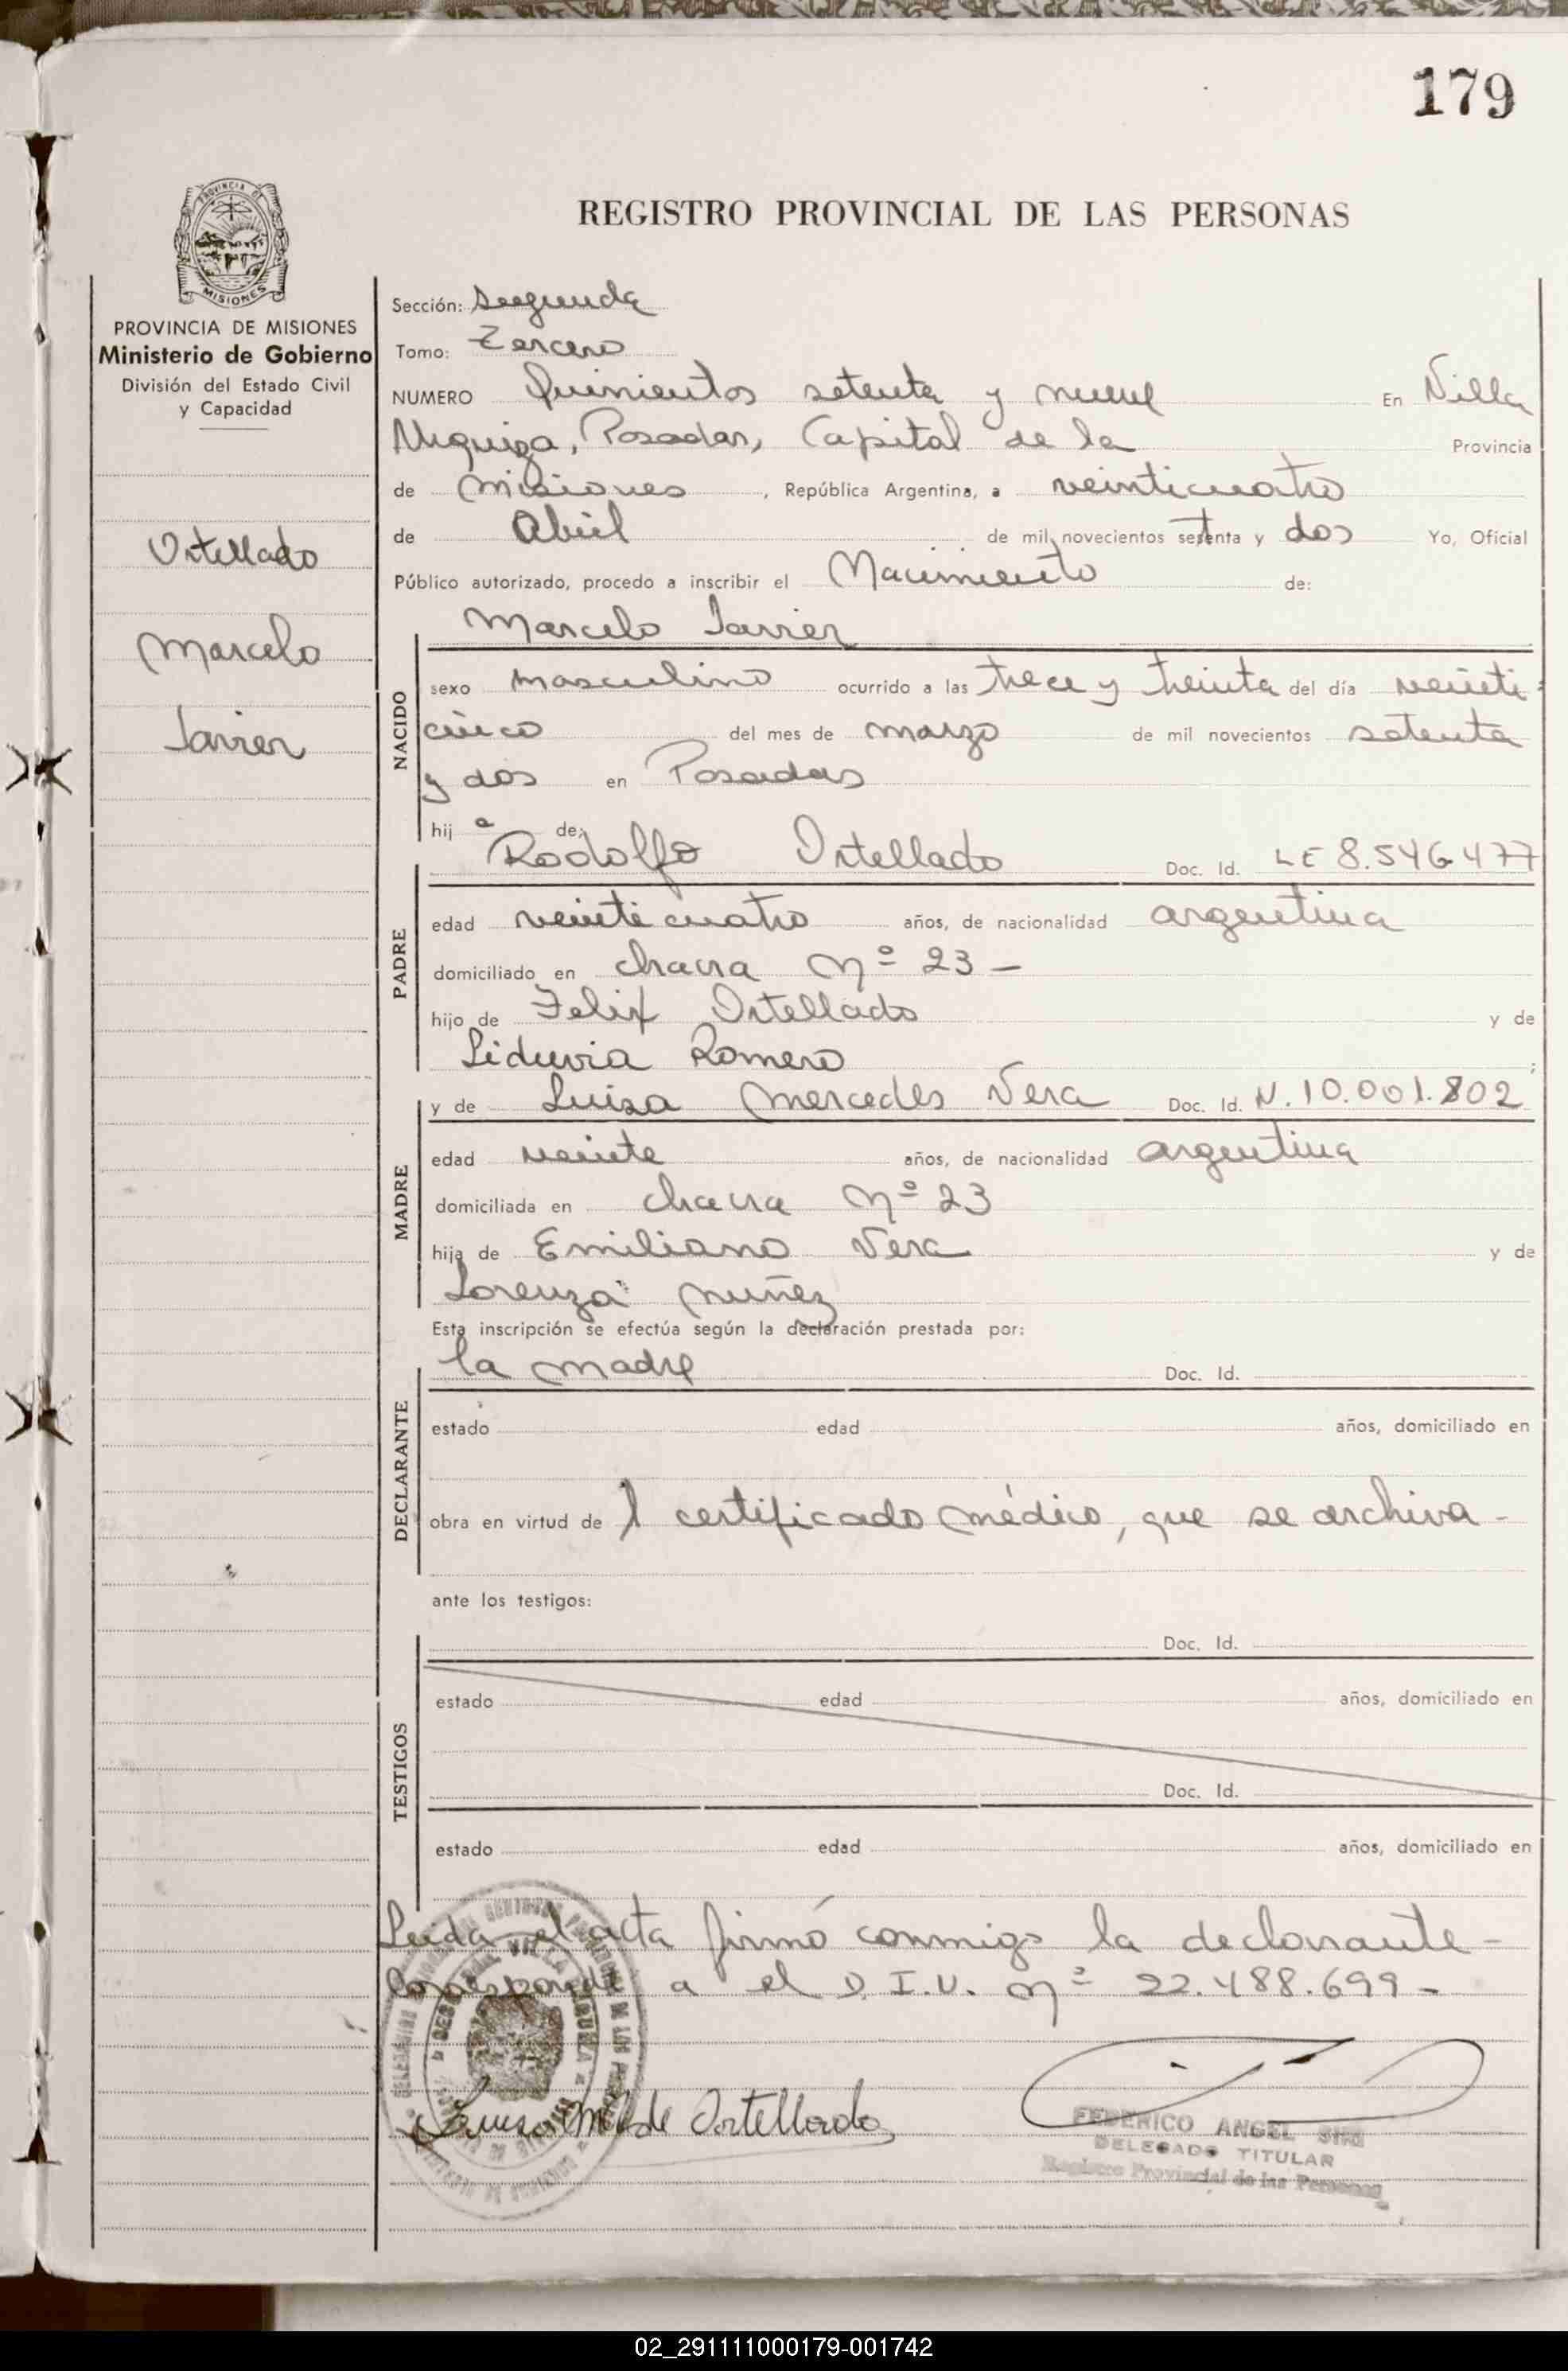 179
PROVINCIA DE
MISIONES
PROVINCIA DE MISIONES
Ministerio de Gobierno
División del Estado Civil
y Capacidad
Ortellado
Marcelo
Javier
REGISTRO PROVINCIAL DE LAS PERSONAS
Sección: Segunda
Tomo: Tercero
NUMERO Quinientos setenta y nueve En Villa
Urquiza, Posadas, Capital de la Provincia
de Misiones, República Argentina, a veinticuatro
de Abril de mil novecientos setenta y dos Yo, Oficial
Público autorizado, procedo a inscribir el Nacimiento de:
Marcelo Javier
NACIDO
sexo masculino ocurrido a las trece y treinta del día veinti-
cinco del mes de marzo de mil novecientos setenta
y dos en Posadas
hij o de:
Rodolfo Ortellado Doc. Id. LE 8.546.477
PADRE
edad veinticuatro años, de nacionalidad argentina
domiciliado en chacra Nº 23 -
hijo de Felix Ortellado y de
Liduvia Romero ;
y de Luisa Mercedes Vera Doc. Id. N. 10.001.802
MADRE
edad veinte años, de nacionalidad argentina
domiciliada en chacra Nº 23
hija de Emiliano Vera y de
Lorenza Nuñez
Esta inscripción se efectúa según la declaración prestada por:
la madre Doc. Id.
DECLARANTE
estado edad años, domiciliado en
obra en virtud de l certificado médico, que se archiva -
ante los testigos:
Doc. Id.
TESTIGOS
estado edad años, domiciliado en
Doc. Id.
estado edad años, domiciliado en
Leida el acta firmó conmigo la declarante -
Corresponde a el D.I.U. Nº 22.488.699 -
Luisa M de Ortellado
FEDERICO ANGEL
DELEGADO TITULAR
Registro Provincial de las Personas
02_291111000179-001742